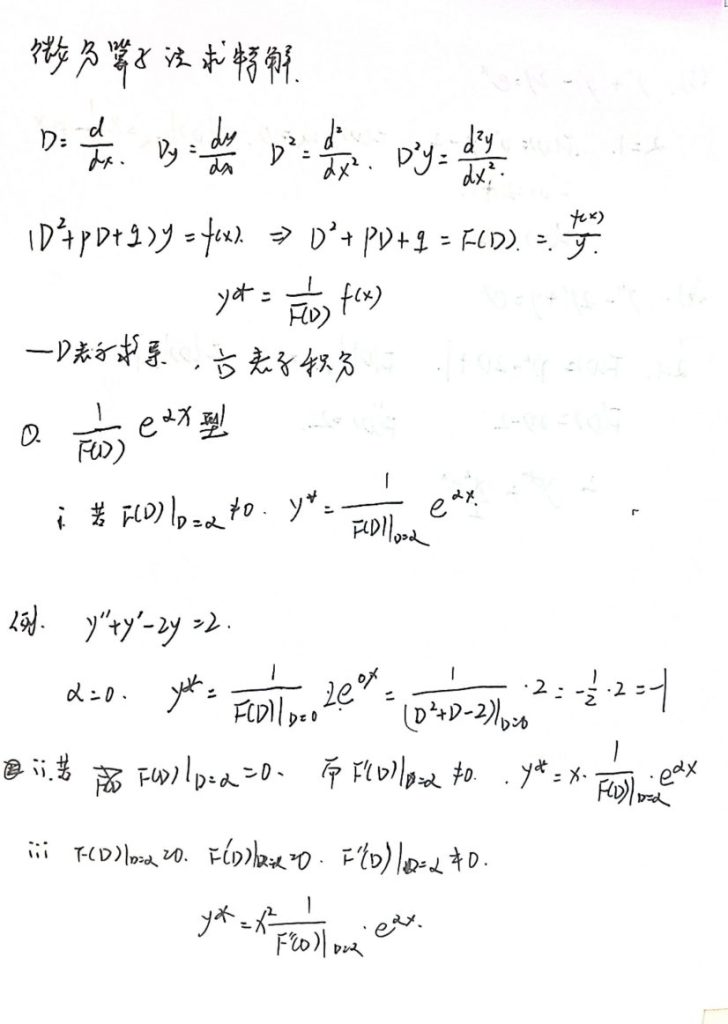 微分算子法求特解.
D = d/dx. Dy = dy/dx D² = d²/dx². D²y = d²y/dx².
(D²+pD+q)y = f(x). ⇒ D²+PD+q = F(D). = f(x)/y.
y* = 1/F(D) f(x)
一D表示求导, 1/D 表示积分
①. 1/F(D) e^{αx} 型
i. 若 F(D)|_{D=α} ≠0. y* = 1/F(D)|_{D=α} e^{αx}.
例. y''+y'-2y=2.
α=0. y* = 1/F(D)|_{D=0} 2e^{0x} = 1/(D²+D-2)|_{D=0} ·2 = -1/2 ·2 = -1
ii. 若 F(D)|_{D=α}=0. 而 F'(D)|_{D=α} ≠0. y* = x· 1/F'(D)|_{D=α} ·e^{αx}
iii F(D)|_{D=α}=0. F'(D)|_{D=α}=0. F''(D)|_{D=α} ≠0.
y* = x² 1/F''(D)|_{D=α} ·e^{αx}.